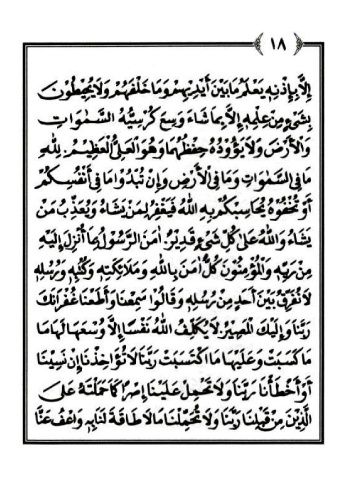 ١٨
إِلَّا بِإِذْنِهِ يَعْلَمُ مَا بَيْنَ أَيْدِيْهِمْ وَمَا خَلْفَهُمْ وَلَا يُحِيْطُوْنَ
بِشَيْءٍ مِنْ عِلْمِهِ إِلَّا بِمَا شَاءَ وَسِعَ كُرْسِيُّهُ السَّمٰوَاتِ
وَالْأَرْضَ وَلَا يَؤُوْدُهُ حِفْظُهُمَا وَهُوَ الْعَلِيُّ الْعَظِيْمُ. لِلّٰهِ
مَا فِي السَّمٰوَاتِ وَمَا فِي الْأَرْضِ وَإِنْ تُبْدُوْا مَا فِي أَنْفُسِكُمْ
أَوْ تُخْفُوْهُ يُحَاسِبْكُمْ بِهِ اللهُ فَيَغْفِرُ لِمَنْ يَشَاءُ وَيُعَذِّبُ مَنْ
يَشَاءُ وَاللهُ عَلَى كُلِّ شَيْءٍ قَدِيْرٌ. اٰمَنَ الرَّسُوْلُ بِمَا أُنْزِلَ إِلَيْهِ
مِنْ رَبِّهِ وَالْمُؤْمِنُوْنَ كُلٌّ اٰمَنَ بِاللهِ وَمَلَائِكَتِهِ وَكُتُبِهِ وَرُسُلِهِ
لَا نُفَرِّقُ بَيْنَ أَحَدٍ مِنْ رُسُلِهِ وَقَالُوْا سَمِعْنَا وَأَطَعْنَا غُفْرَانَكَ
رَبَّنَا وَإِلَيْكَ الْمَصِيْرُ. لَا يُكَلِّفُ اللهُ نَفْسًا إِلَّا وُسْعَهَا لَهَا مَا
مَا كَسَبَتْ وَعَلَيْهَا مَا اكْتَسَبَتْ رَبَّنَا لَا تُؤَاخِذْنَا إِنْ نَسِيْنَا
أَوْ أَخْطَأْنَا رَبَّنَا وَلَا تَحْمِلْ عَلَيْنَا إِصْرًا كَمَا حَمَلْتَهُ عَلَى
الَّذِيْنَ مِنْ قَبْلِنَا رَبَّنَا وَلَا تُحَمِّلْنَا مَا لَا طَاقَةَ لَنَا بِهِ وَاعْفُ عَنَّا